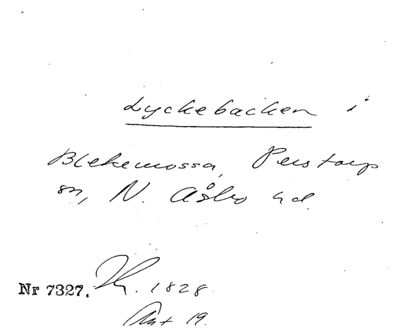 Lyckebacken i
Blekemossa, Perstorp
sn, N. Åsbo hd.
Nr 7327. 1828
Akt 19.